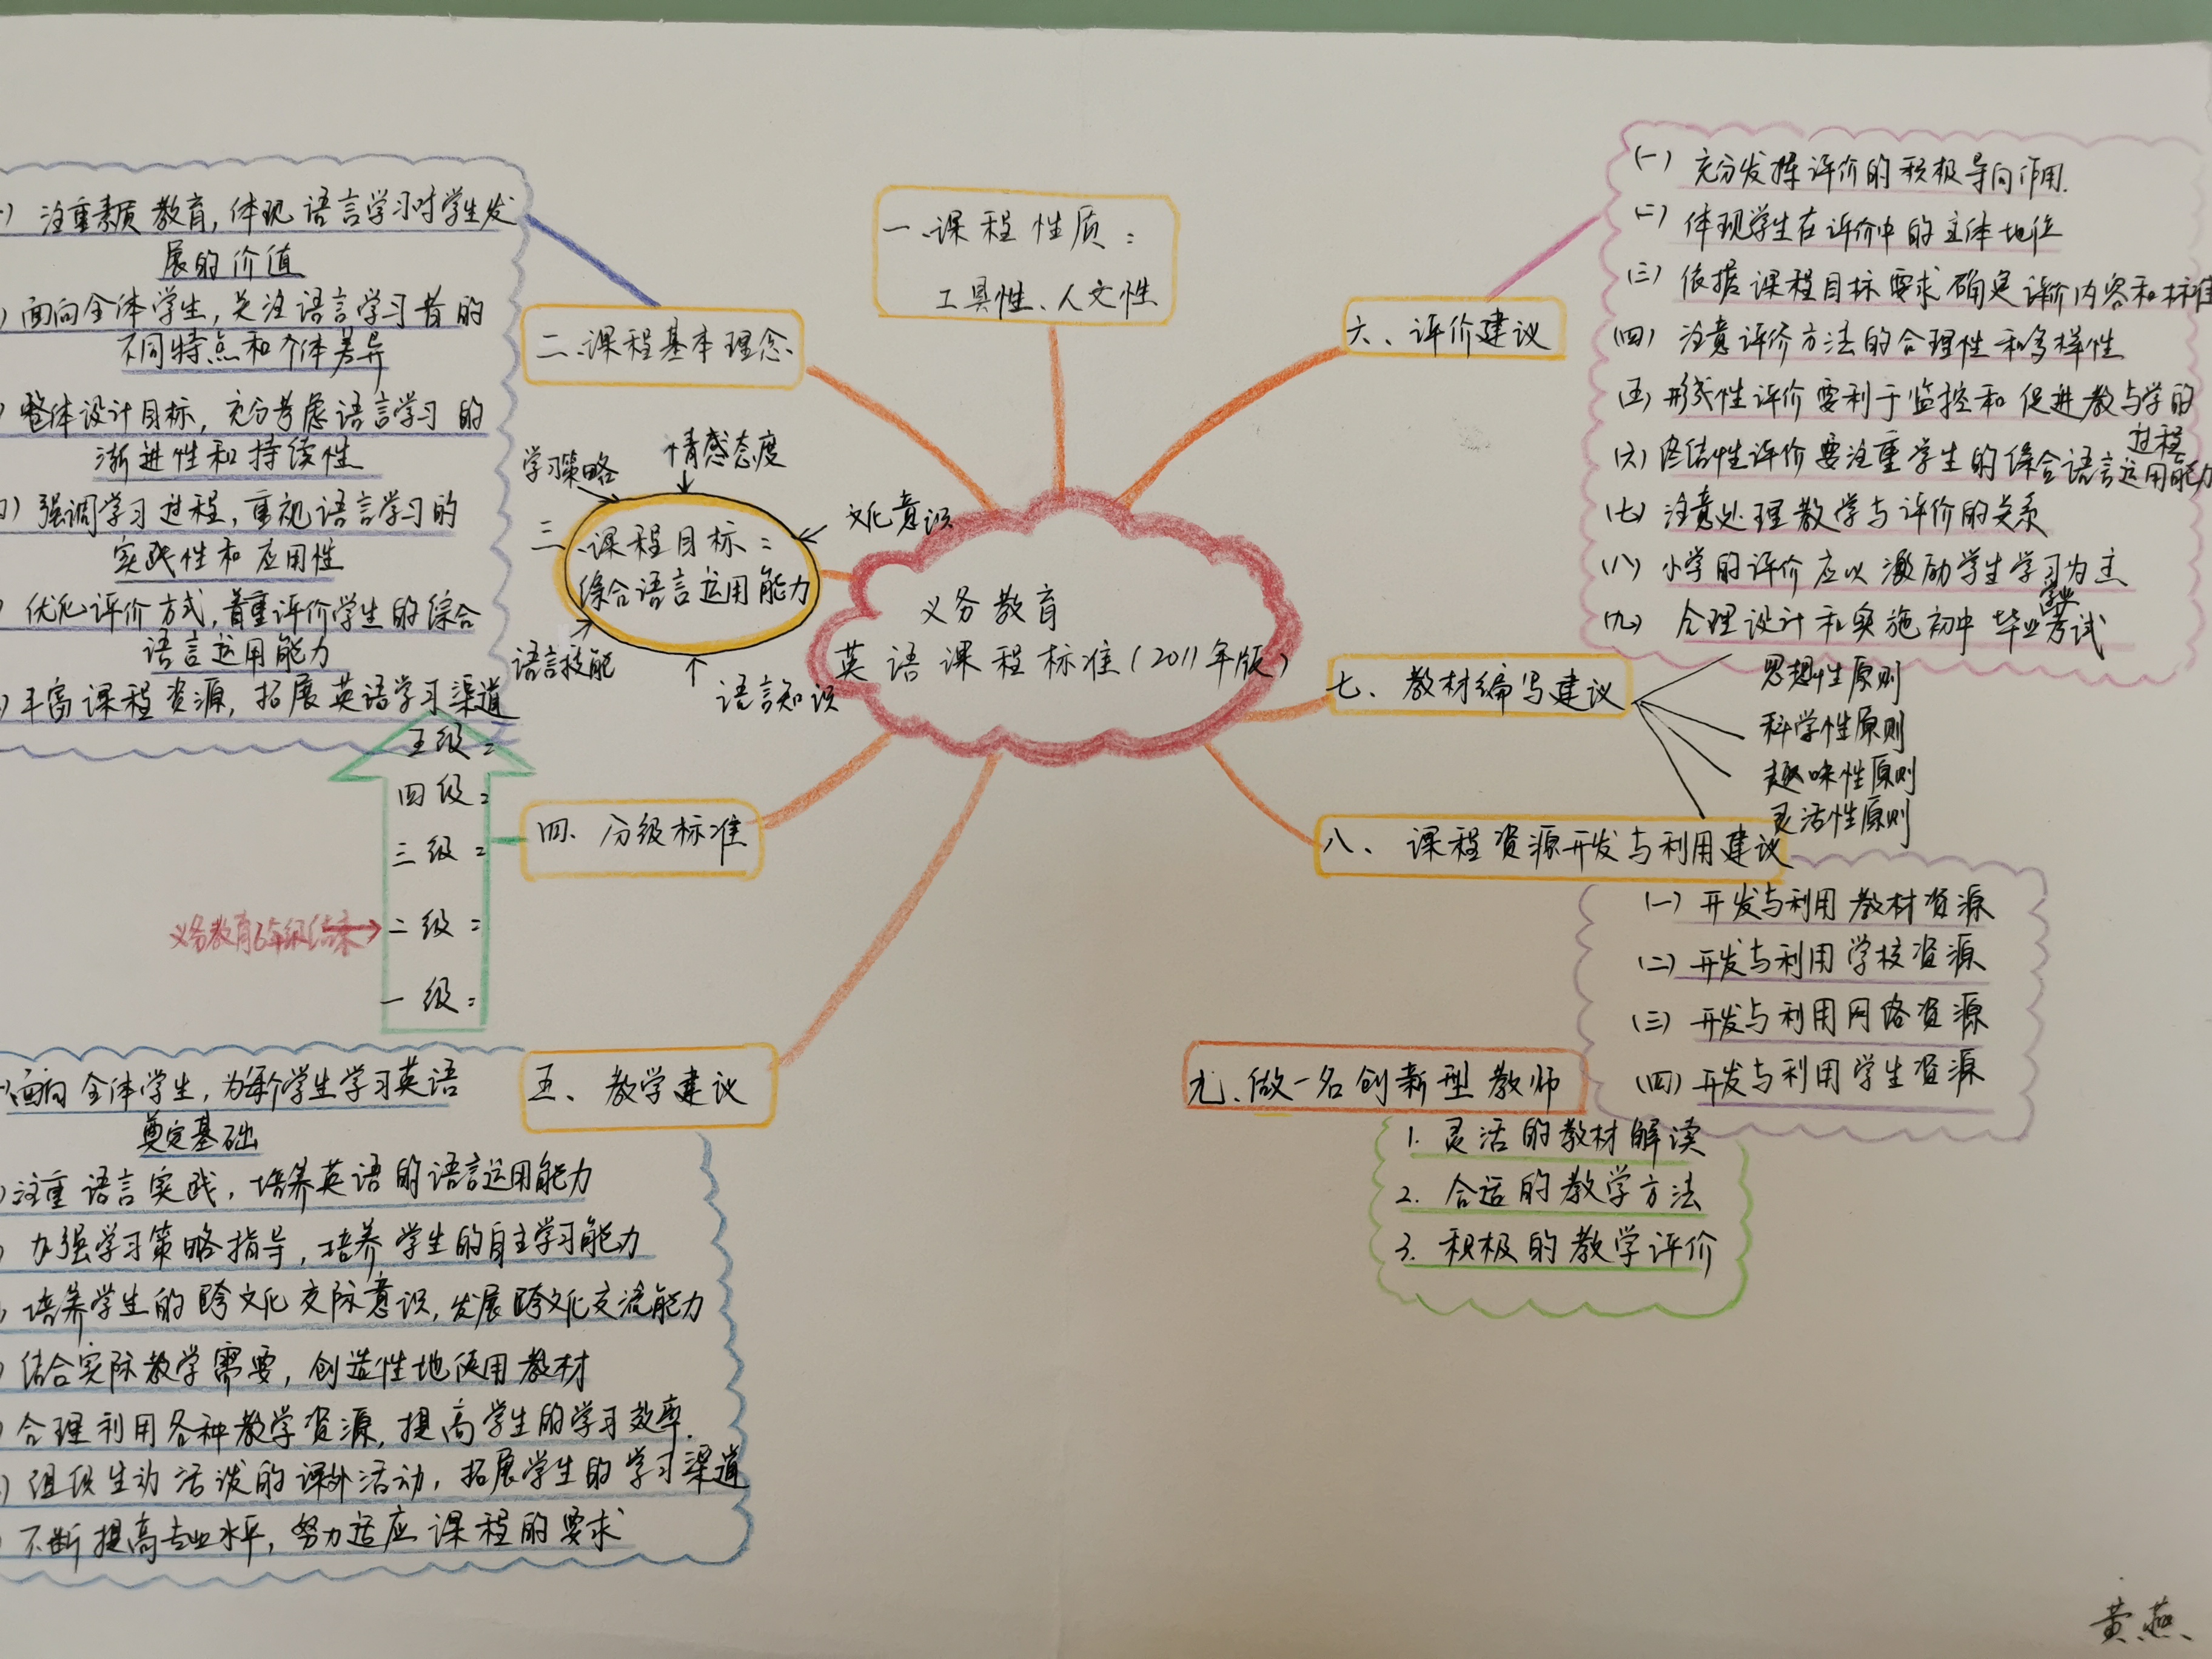 义务教育
英语课程标准(2011年版)
一、课程性质:
工具性、人文性
二、课程基本理念
) 注重素质教育,体现语言学习对学生发
展的价值
) 面向全体学生,关注语言学习者的
不同特点和个体差异
) 整体设计目标,充分考虑语言学习的
渐进性和持续性
) 强调学习过程,重视语言学习的
实践性和应用性
) 优化评价方式,着重评价学生的综合
语言运用能力
) 丰富课程资源,拓展英语学习渠道
三、课程目标:
综合语言运用能力
学习策略
情感态度
文化意识
语言技能
语言知识
四、分级标准
五级:
四级:
三级:
二级:
一级:
义务教育6年级结束
五、教学建议
面向全体学生,为每个学生学习英语
奠定基础
) 注重语言实践,培养英语的语言运用能力
) 加强学习策略指导,培养学生的自主学习能力
) 培养学生的跨文化交际意识,发展跨文化交流能力
) 结合实际教学需要,创造性地使用教材
) 合理利用各种教学资源,提高学生的学习效率.
) 组织生动活泼的课外活动,拓展学生的学习渠道
) 不断提高专业水平,努力适应课程的要求
六、评价建议
(一) 充分发挥评价的积极导向作用.
(二) 体现学生在评价中的主体地位
(三) 依据课程目标要求确定评价内容和标准
(四) 注意评价方法的合理性和多样性
(五) 形式性评价要利于监控和促进教与学的
过程
(六) 终结性评价要注重学生的综合语言运用能力
(七) 注意处理教学与评价的关系
(八) 小学的评价应以激励学生学习为主
(九) 合理设计和实施初中毕业学业考试
七、教材编写建议
思想性原则
科学性原则
趣味性原则
灵活性原则
八、课程资源开发与利用建议
(一) 开发与利用教材资源
(二) 开发与利用学校资源
(三) 开发与利用网络资源
(四) 开发与利用学生资源
九、做一名创新型教师
1. 灵活的教材解读
2. 合适的教学方法
3. 积极的教学评价
黄燕